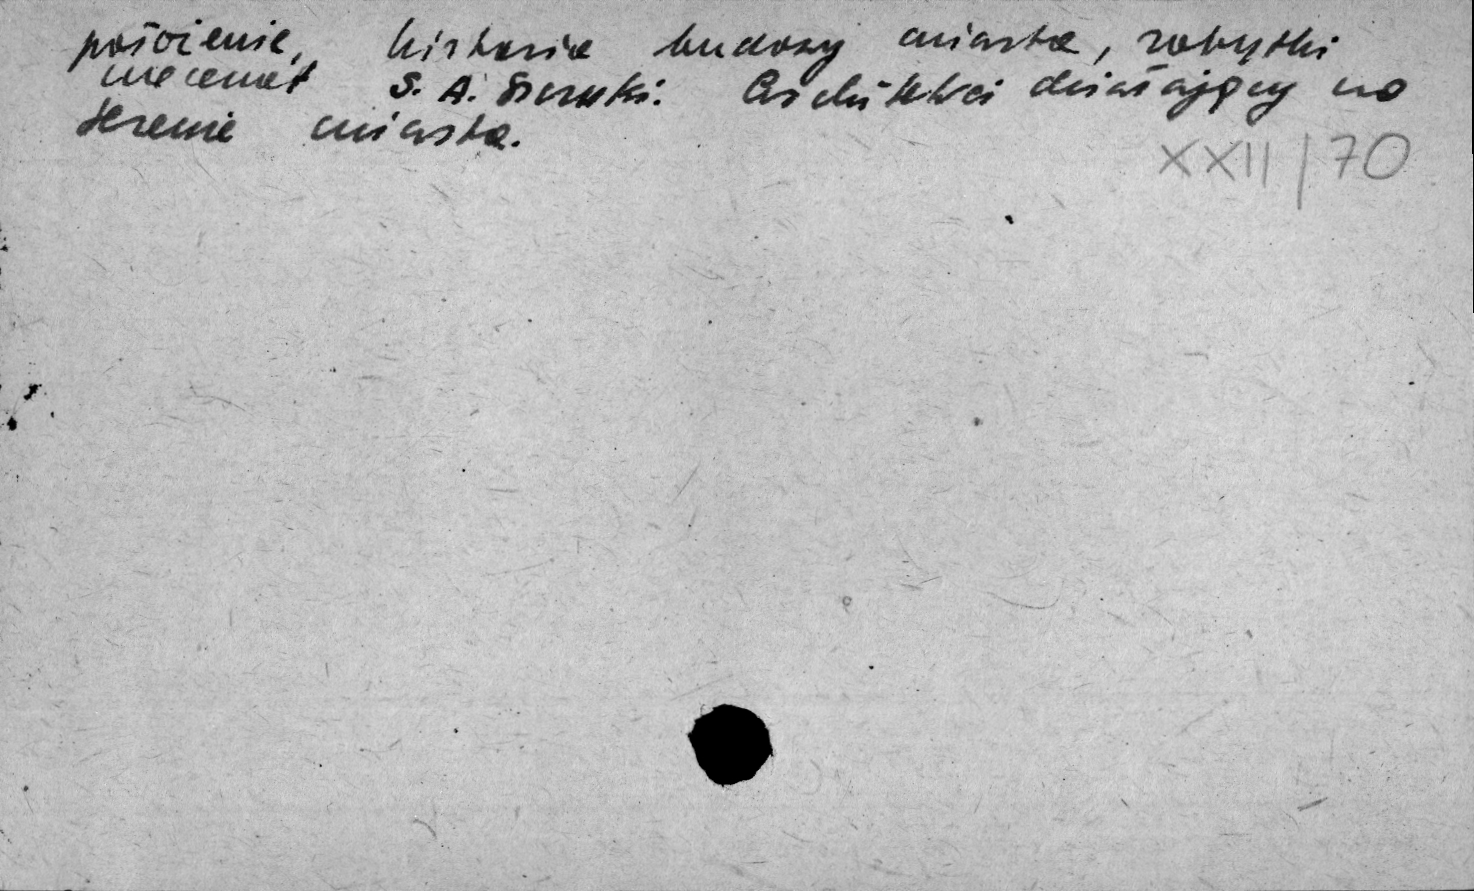 pościenie, historia budowy miasta, zabytki
mecenat S. A. Szczuki. Architekci działający na
terenie miasta.
XXII/70